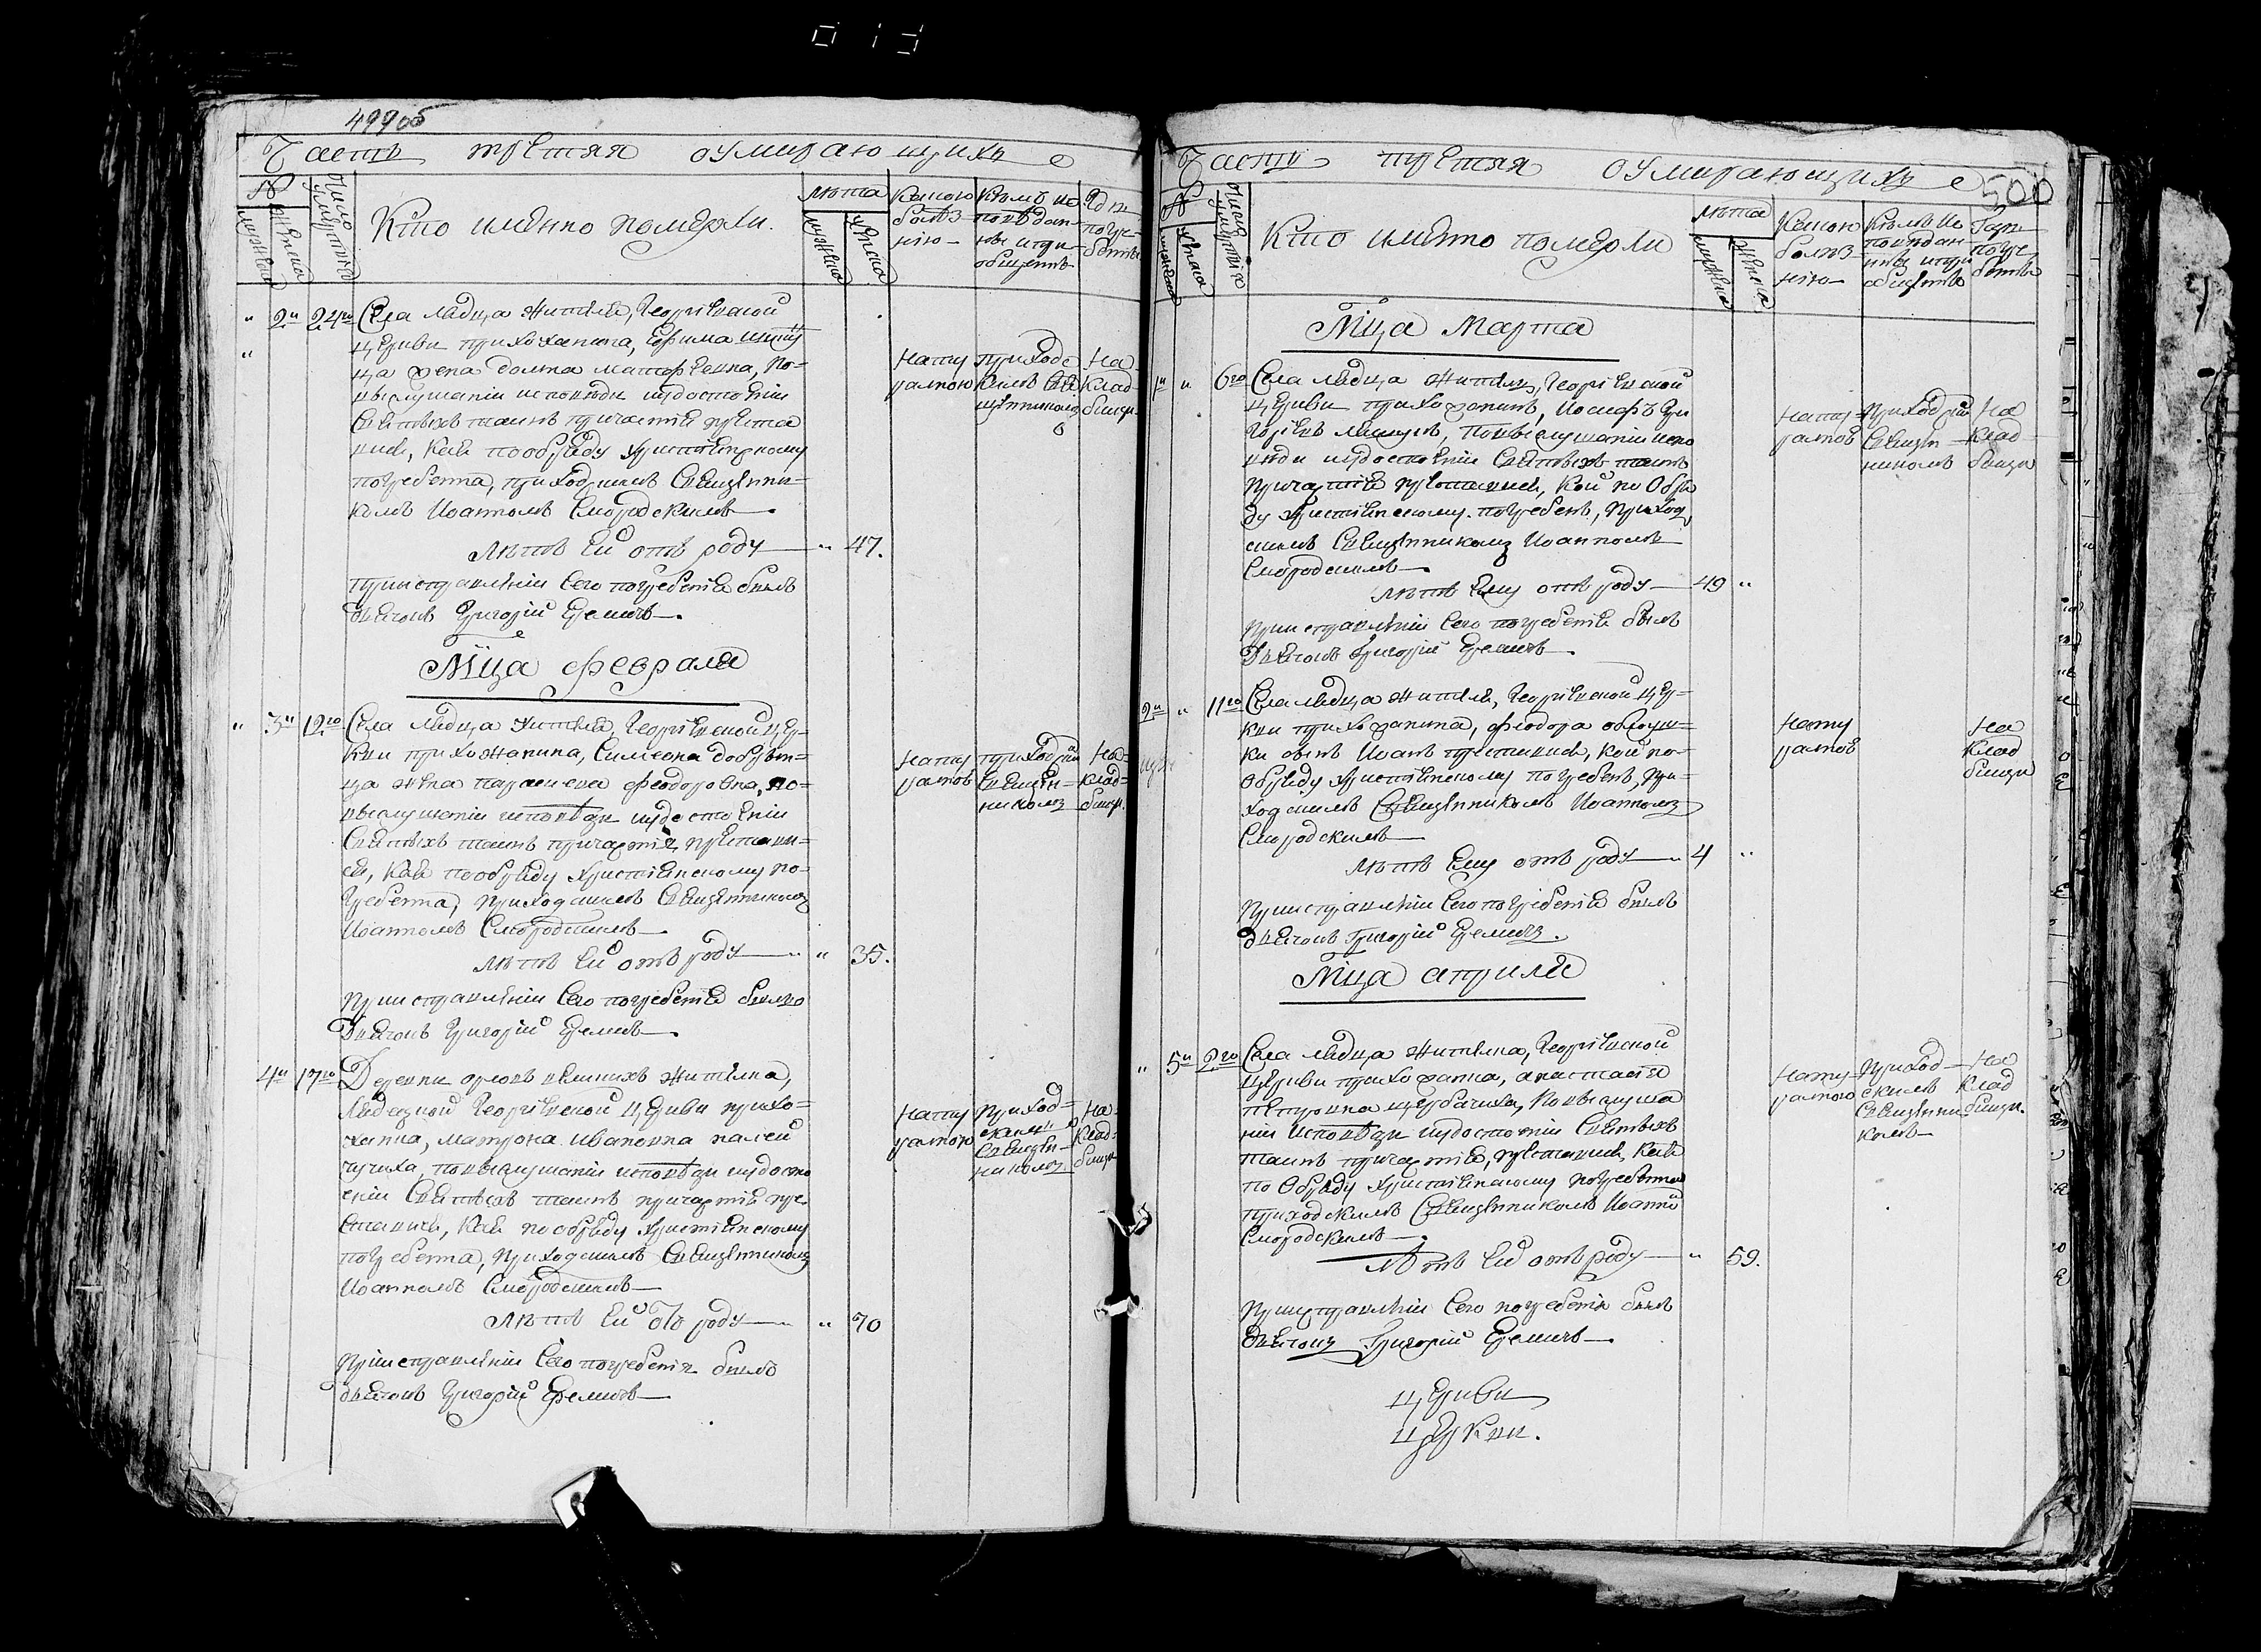 499об
Часть третяя оумирающихъ
№
мужеска
женска
Число умертвія
Кто именно померли.
лѣта
мужеска
женска
Какою болѣз-
нію
Кѣмъ ис-
повѣдан-
ны и при-
общены
Гдѣ
погре-
бены
" 2" 24го Села Лядца жителя, Георгіевской
церкви прихожанина, Ефима
жена Домна
выслушаніи исповѣди и удостоеніи
Святыхъ таинъ причастія преста
вися, Кая по обряду христіянскому
погребенна, приходскимъ Священни-
комъ Иоанномъ Смородскимъ
Натуралною
приходскимъ Священникомъ
На Кладбищи
Лѣтъ Ей отъ роду " 47.
При исправленіи Сего погребенія былъ
дьячокъ Григорій Еремичъ
Мца февраля
" 3" 12го Села Лядца жителя, Георгіевской цер-
кви прихожанина, Симеона
жена Параскева Феодоровна, по-
выслушаніи исповѣди и удостоеніи
Святыхъ таинъ причастія, престави-
ся, Кая по обряду христіянскому по-
гребенна, приходскимъ Священникомъ
Иоанномъ Смородскимъ
Натуралною
приходскимъ Священникомъ
На Кладбищи
Лѣтъ Ей отъ роду " 35.
При исправленіи Сего погребенія былъ
Дьячокъ Григорій Еремичъ
4" 17го Деревни великихъ жителка,
Лядецкой Георгіевской Церкви прихо-
жанка, Матрона Ивановна
по выслушаніи исповѣди и удосто
еніи Святыхъ таинъ причастія пре-
ставися, Кая по обряду христіянскому
погребенна, приходскимъ Священникомъ
Иоанномъ Смородскимъ
Натуралною
приходскимъ Священникомъ
На Кладбищи
Лѣтъ Ей отъ роду " 70
При исправленіи Сего погребенія былъ
дьячокъ Григорій Еремичъ
Часть третяя оумирающихъ
500
№
мужеска
женска
Число умертвія
Кто имянно померли
лѣта
мужеска
женска
Какою болѣз-
нію
Кѣмъ ис-
повѣдан-
ны и при-
общены
Гдѣ
погре-
бены
Мца Марта
1" " 6го Села Лядца житель, Георгіевской
церкви прихожанинъ, Иосифъ Гри
горіевъ по выслушаніи испо
вѣди и удостоеніи Святыхъ таинъ
причастія преставися, Кой по Обря
ду христіянскому погребенъ, приход
скимъ Священникомъ Иоанномъ
Смородскимъ
Натуралною
приходскимъ Священникомъ
На Кладбищи
Лѣтъ Ему отъ роду 49 "
При исправленіи Сего погребенія былъ
Дьячокъ Григорій Еремичъ
2" " 11го Села Лядца жителя, Георгіевской цер-
кви прихожанина, Феодора
сынъ Иоанъ преставися, Кой по-
Обряду христіянскому погребенъ, при-
ходскимъ Священникомъ Иоанномъ
Смородскимъ
Натуралною
На
Клад
бищи
Лѣтъ Ему отъ роду 4 "
При исправленіи Сего погребенія былъ
дьячокъ Григорій Еремичъ.
Мца априля
" 5" 2го Села Лядца жителка, Георгіевской
Церкви прихожанка, Анастасія
Петровна по выслуша
ніи исповѣди и удостоеніи Святыхъ
таинъ причастія, преставися, Кая
по Обряду христіянскому погребенна
приходскимъ Священникомъ Иоанно
Смородскимъ
Натуралною
приходскимъ Священникомъ
На Кладбищи.
Лѣтъ Ей отъ роду " 59.
При исправленіи Сего погребенія былъ
дьячокъ Григорій Еремичъ
Церкви
церкви.